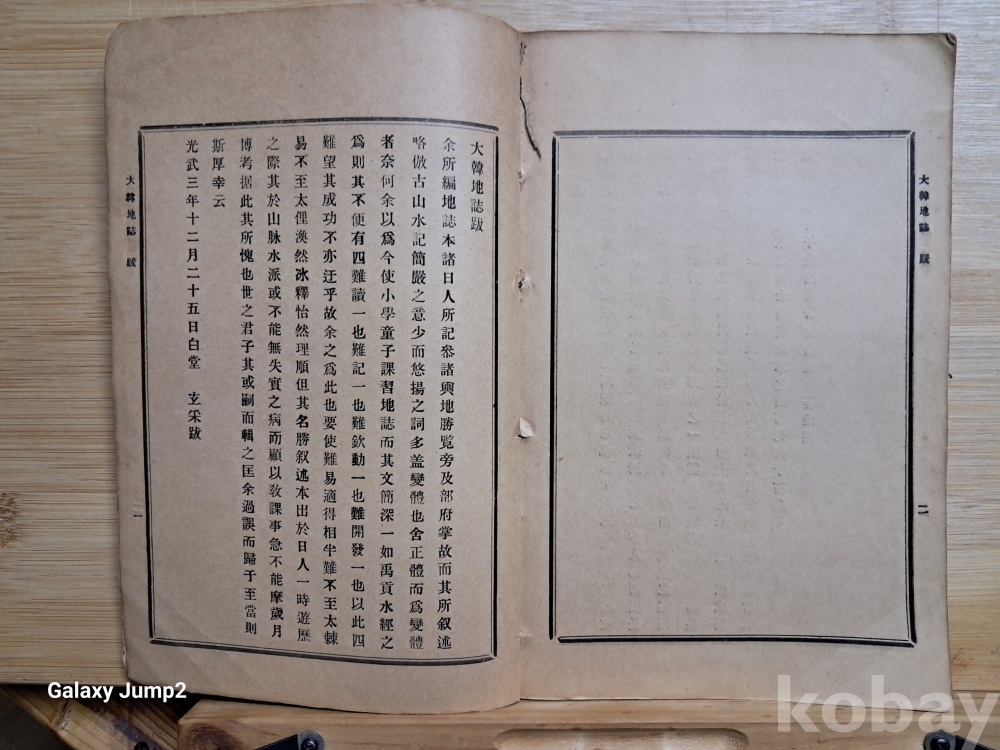 大韓地誌跋
余所編地誌本諸日人所記叅諸輿地勝覧旁及部府掌故而其所叙述
略倣古山水記簡嚴之意少而悠揚之詞多盖變體也舍正體而爲變體
者奈何余以爲今使小學童子課習地誌而其文簡深一如禹貢水經之
爲則其不便有四難讀一也難記一也難欽動一也難開發一也以此四
難望其成功不亦迂乎故余之爲此也要使難易適得相半難不至太棘
易不至太俚渙然冰釋怡然理順但其名勝叙述本出於日人一時遊歷
之際其於山脉水派或不能無失實之病而顧以敎課事急不能摩歲月
博考据此其所愧也世之君子其或嗣而輯之匡余過誤而歸于至當則
斯厚幸云
光武三年十二月二十五日白堂 玄采跋
大韓地誌 跋
一
大韓地誌 跋
二
Galaxy Jump2
kobay